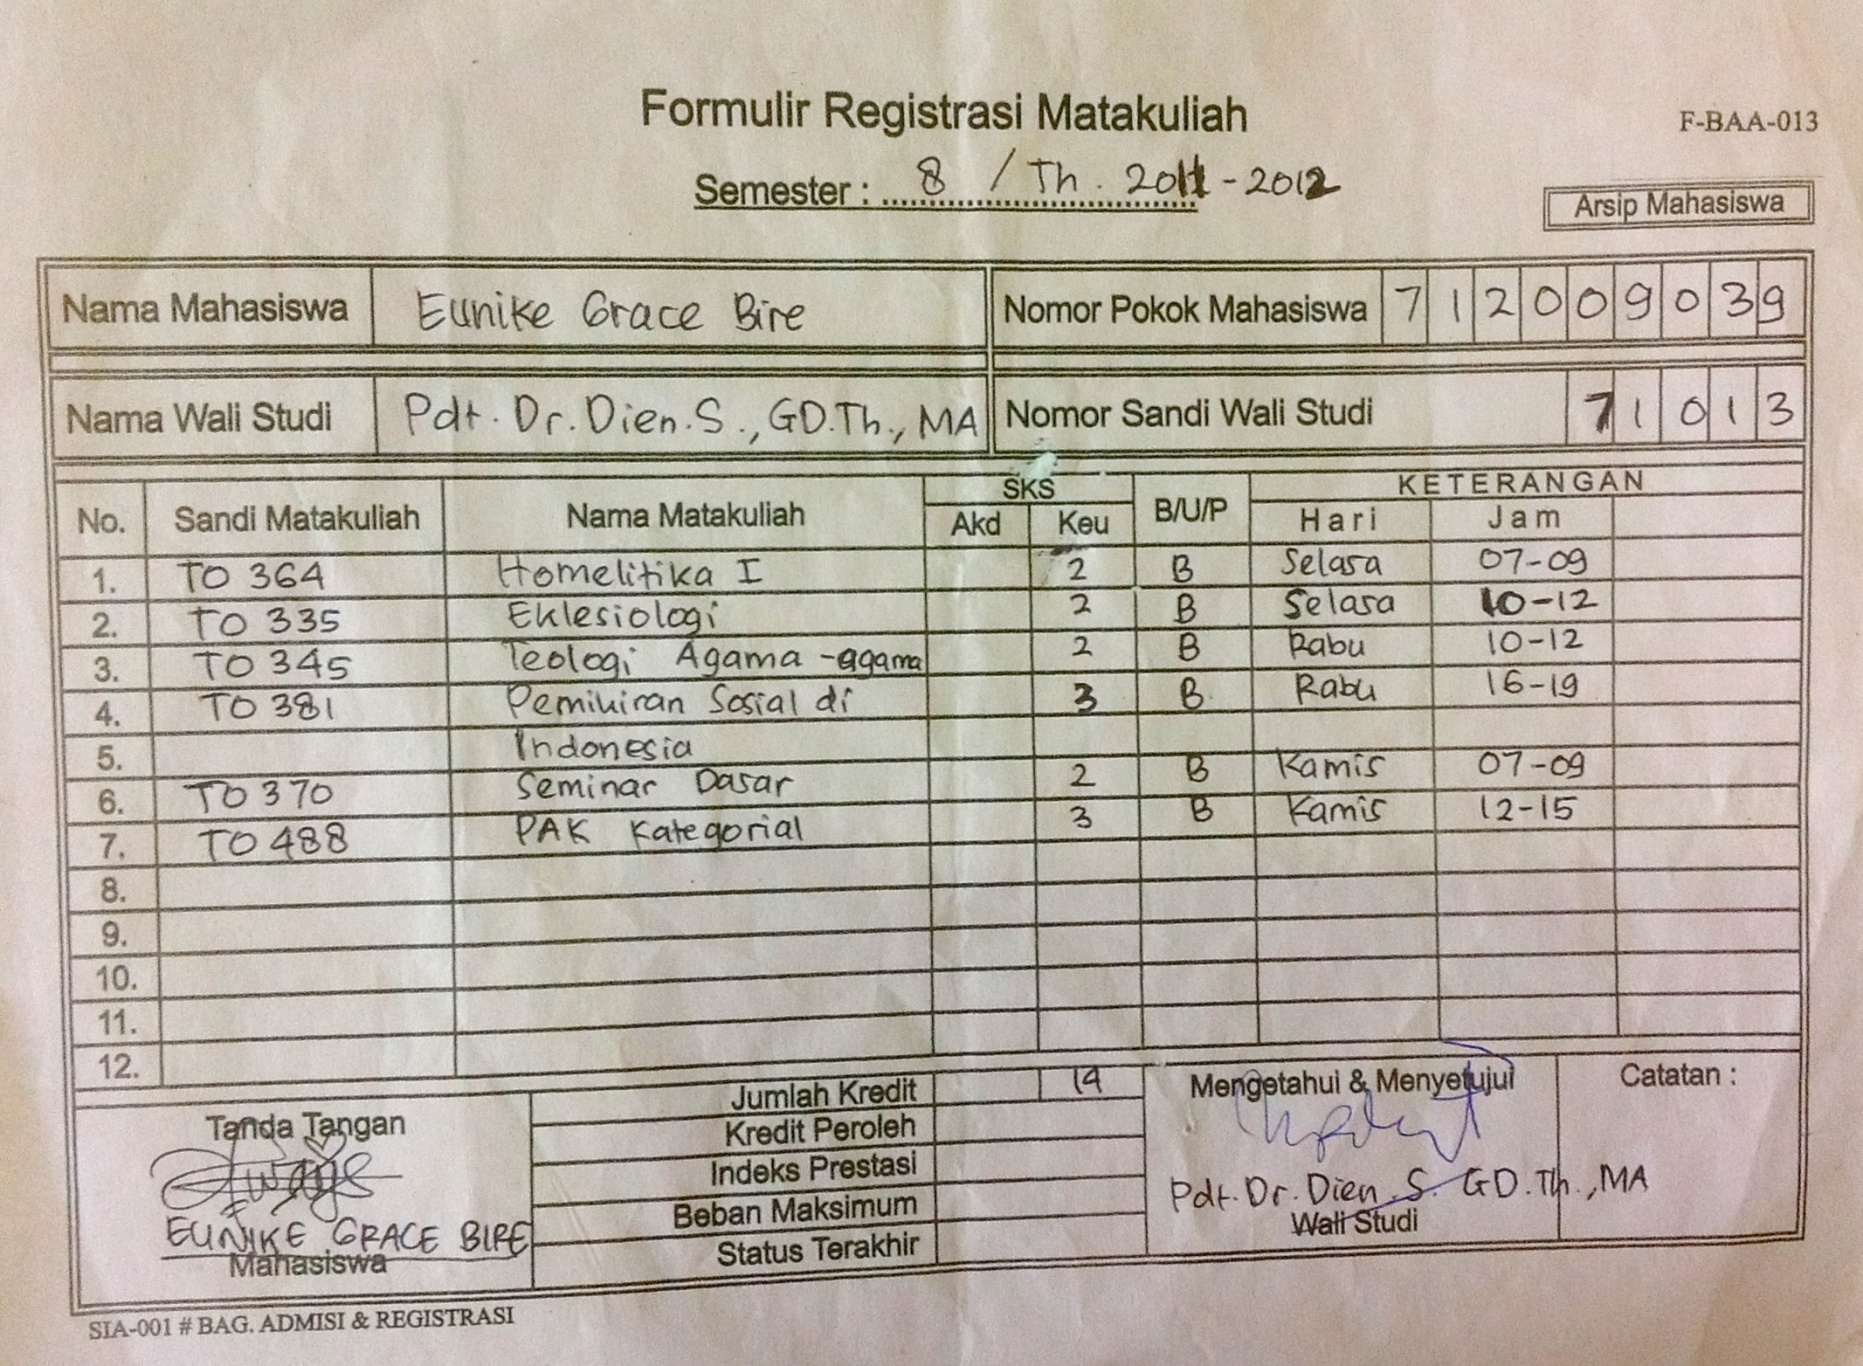 Formulir Registrasi Matakuliah
F-BAA-013
Semester : 8 / Th. 2011 - 2012
Arsip Mahasiswa
Nama Mahasiswa Eunike Grace Bire Nomor Pokok Mahasiswa 712009039
Nama Wali Studi Pdt. Dr. Dien. S., GD.Th., MA Nomor Sandi Wali Studi 71013
No. Sandi Matakuliah Nama Matakuliah SKS B/U/P KETERANGAN
Akd Keu Hari Jam
1. TO 364 Homelitika I 2 B Selasa 07-09
2. TO 335 Eklesiologi 2 B Selasa 10-12
3. TO 345 Teologi Agama -agama 2 B Rabu 10-12
4. TO 381 Pemikiran Sosial di 3 B Rabu 16-19
5. Indonesia
6. TO 370 Seminar Dasar 2 B Kamis 07-09
7. TO 488 PAK Kategorial 3 B Kamis 12-15
8.
9.
10.
11.
12.
Jumlah Kredit 14
Kredit Peroleh
Indeks Prestasi
Beban Maksimum
Status Terakhir
Tanda Tangan
EUNIKE GRACE BIRE
Mahasiswa
Mengetahui & Menyetujui
Pdt. Dr. Dien. S. GD.Th., MA
Wali Studi
Catatan :
SIA-001 # BAG. ADMISI & REGISTRASI